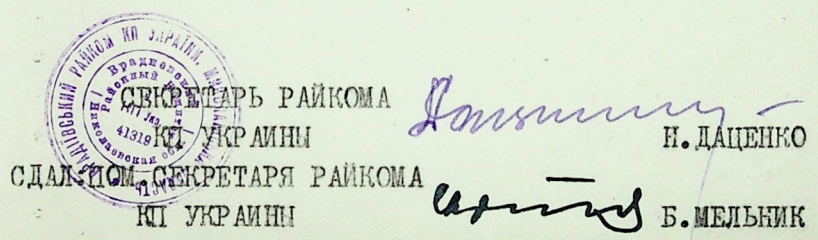 СЕКРЕТАРЬ РАЙКОМА
КП УКРАИНЫ Н. ДАЦЕНКО
СДАЛ: ПОМ. СЕКРЕТАРЯ РАЙКОМА
КП УКРАИНЫ Б. МЕЛЬНИК
РАЙКОМ КП УКРАЇНИ
Врадиевский
Районный
Николаевская
41319